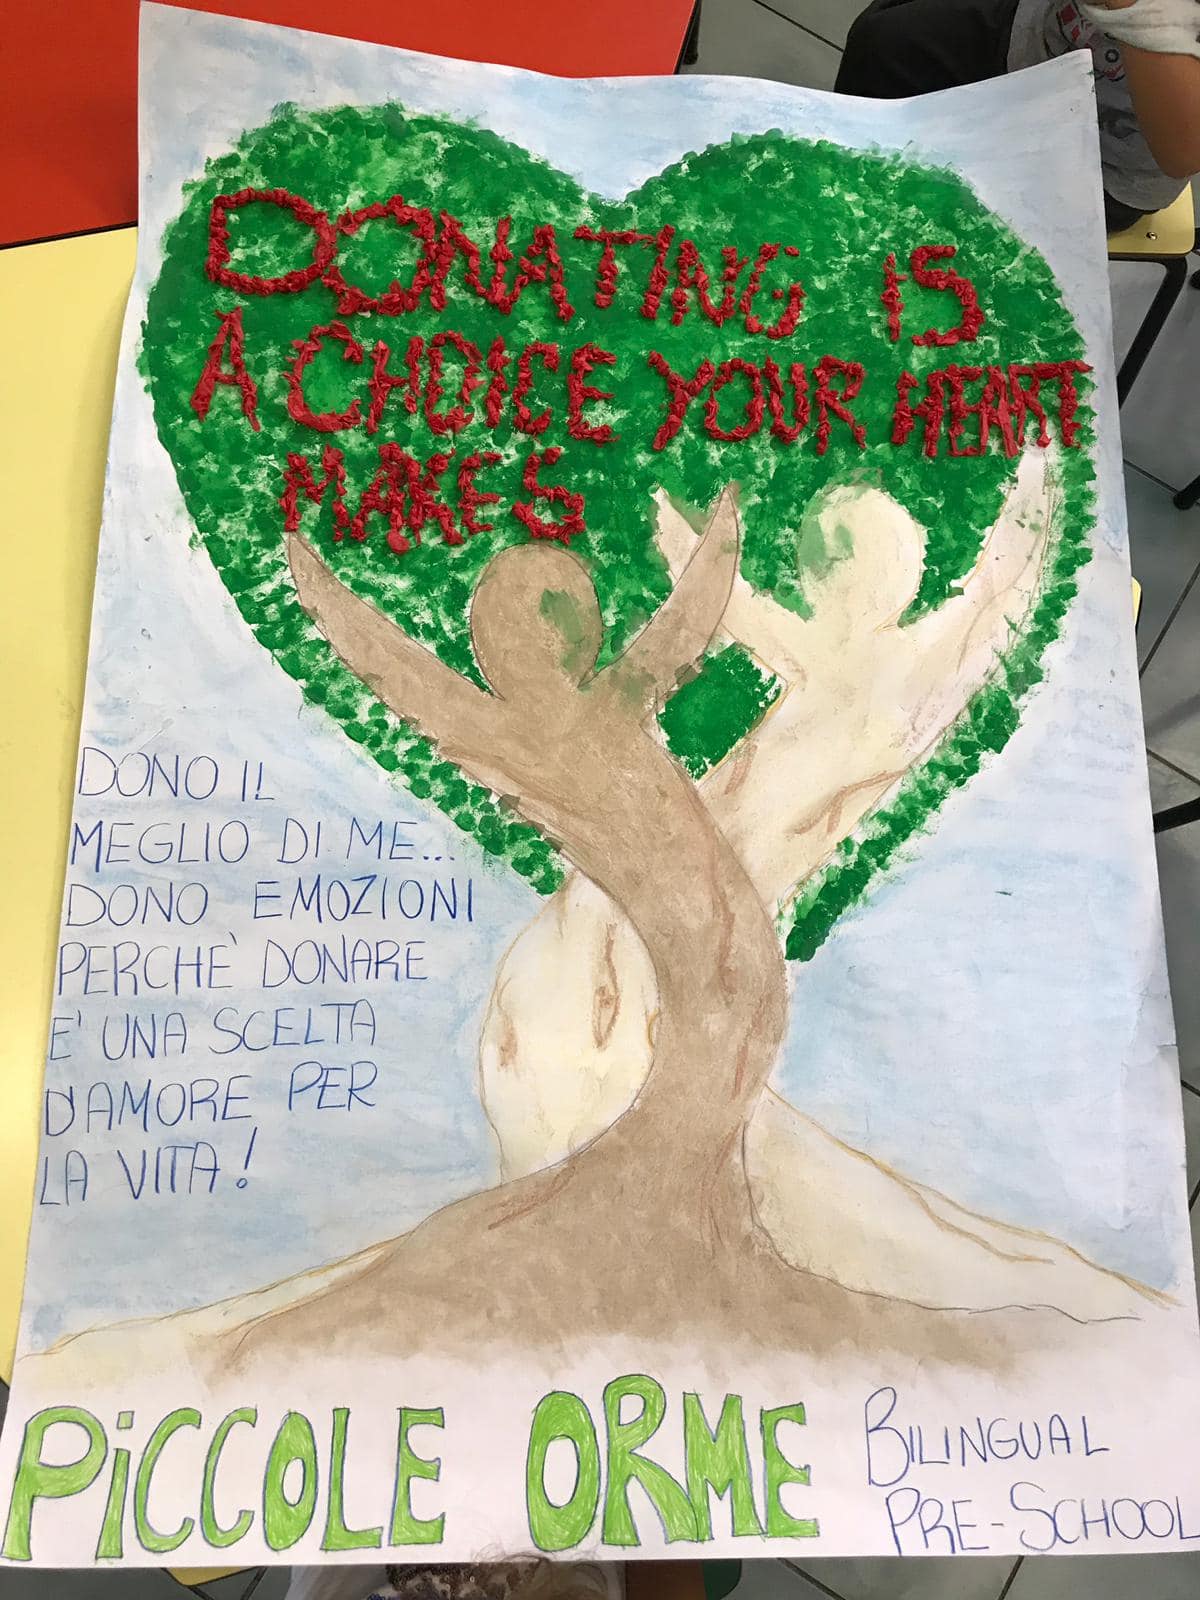 DONATING IS
A CHOICE YOUR HEART
MAKES
DONO IL
MEGLIO DI ME...
DONO EMOZIONI
PERCHÈ DONARE
E' UNA SCELTA
D'AMORE PER
LA VITA!
PiCCOLE ORME
BILINGUAL
PRE-SCHOOL